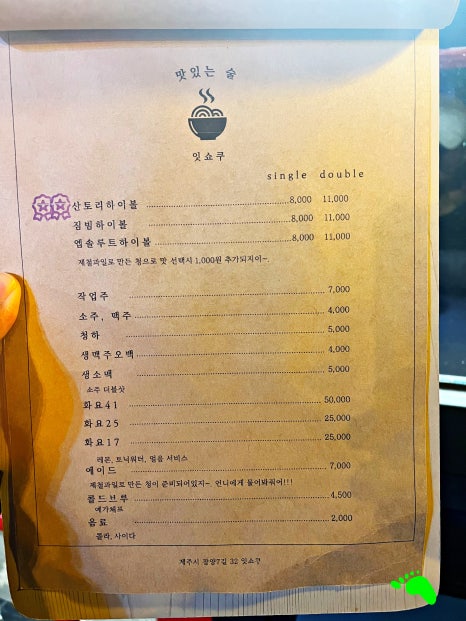 맛있는 술
잇쇼쿠
single double
산토리하이볼 8,000 11,000
짐빔하이볼 8,000 11,000
엡솔루트하이볼 8,000 11,000
제철과일로 만든 청으로 맛 선택시 1,000원 추가되지이~.
작업주 7,000
소주, 맥주 4,000
청하 5,000
생맥주오백 4,000
생소맥 5,000
소주 더블샷
화요41 50,000
화요25 25,000
화요17 25,000
레몬, 토닉워터, 얼음 서비스
에이드 7,000
제철과일로 만든 청이 준비되어있지~. 언니에게 물어봐줘어!!!
콜드브루 4,500
예가체프
음료 2,000
콜라, 사이다
제주시 광양7길 32 잇쇼쿠